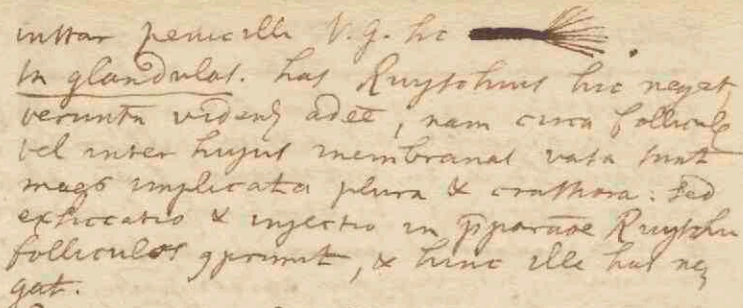 instar penicilli V.g. hc
In glandulas. has Ruyschius hic negat,
veruntn vident adeē, nam circa follicul
vel inter hujus membranas vasa sunt
mags implicata plura & crassiora: sed
exsiccatio & injectio in p̄paraōe Ruyschii
folliculos ꝯprimit, & hinc ille has ne,
gat.